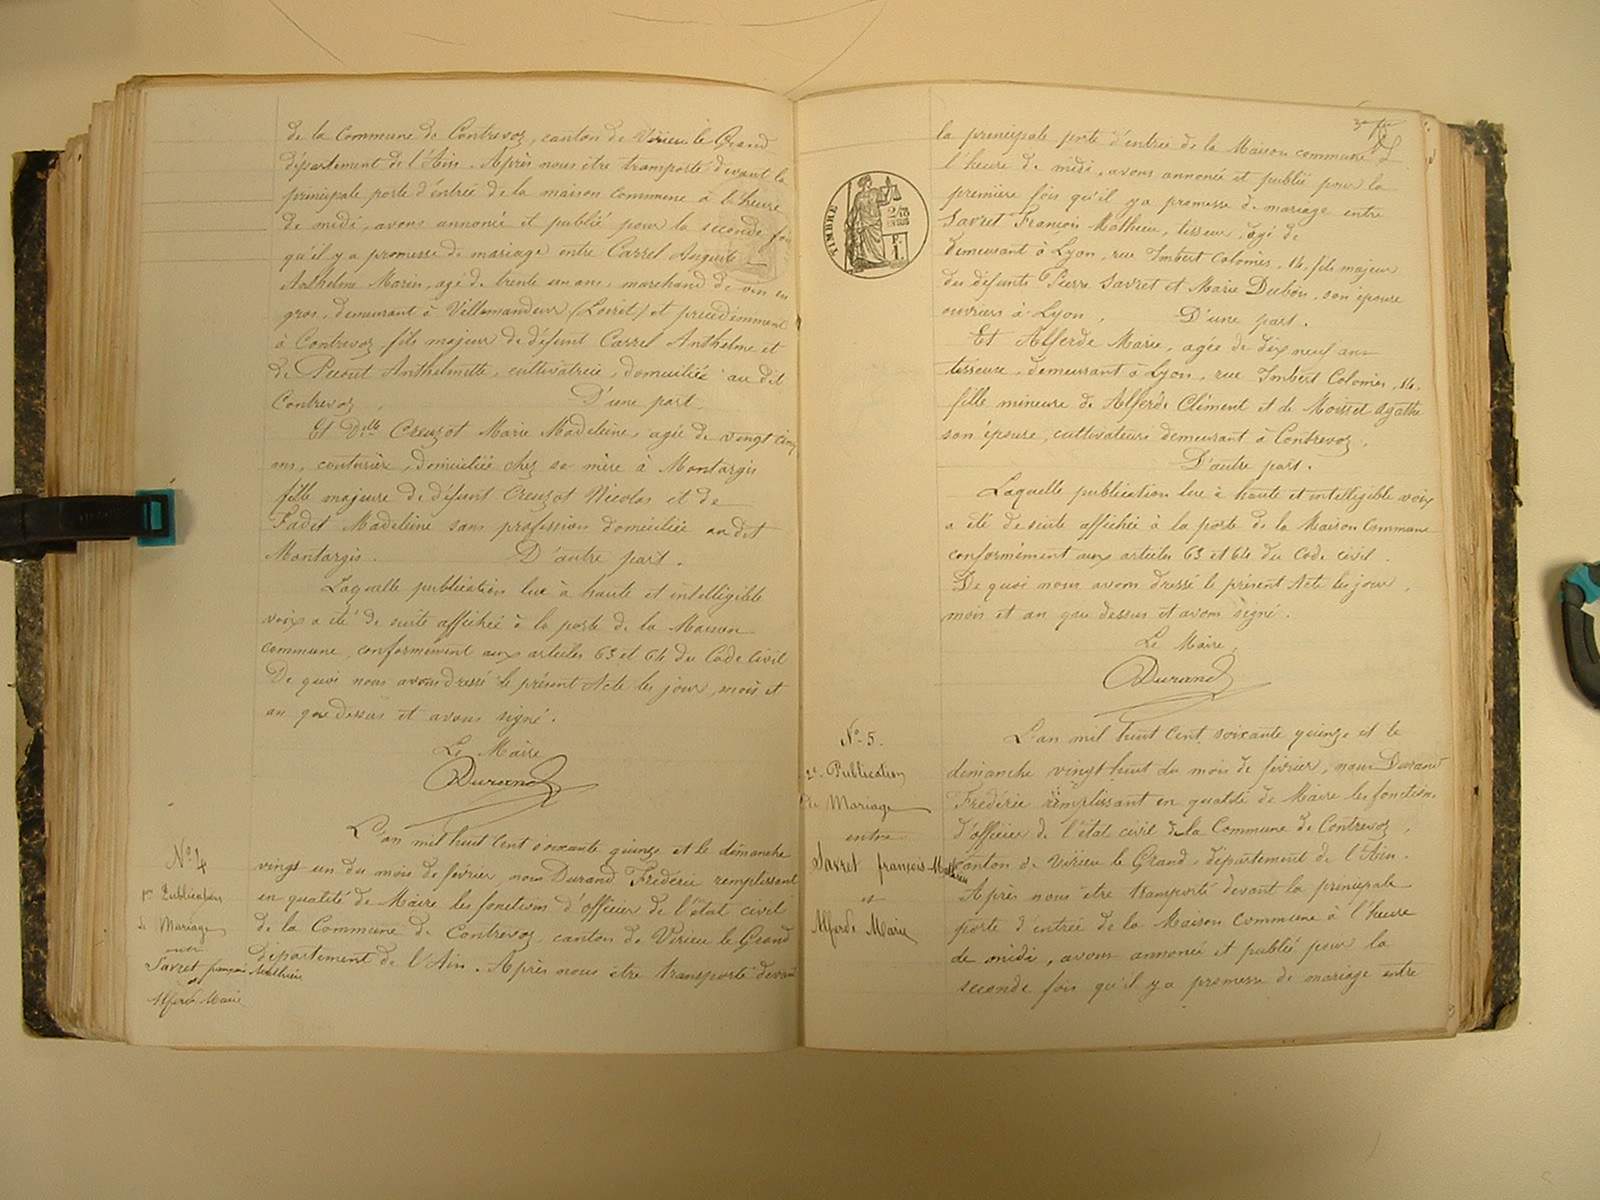 de la Commune de Contrevoz, canton de Virieu le Grand
département de l'Ain. Après nous être transporté devant la
principale porte d'entrée de la maison commune à l'heure
de midi, avons annoncé et publié pour la seconde fois
qu'il y a promesse de mariage entre Carrel Auguste
Anthelme Marin, agé de trente un ans, marchand de vin en
gros, demeurant à Villemandeur (Loiret) et précédemment
à Contrevoz, fils majeur de défunt Carrel Anthelme et
de Anthelmette, cultivatrice, domiciliée au dit
Contrevoz, D'une part.
Et Dlle Creuzot Marie Madeleine, agée de vingt cinq
ans, couturière, domiciliée chez sa mère à Montargis
fille majeure de défunt Creuzot Nicolas et de
Madeleine sans profession domiciliée au dit
Montargis. D'autre part.
Laquelle publication lue à haute et intelligible
voix a été de suite affichée à la porte de la Maison
commune, conformément aux articles 63 et 64 du Code Civil
De quoi nous avons dressé le présent Acte les jour, mois et
an que dessus et avons signé.
Le Maire
Durand
N° 4
1re Publication
de Mariage
entre
Savret françois Mathieu
et
Alferde Marie
L'an mil huit cent soixante quinze et le dimanche
vingt un du mois de février nous Durand Frédéric remplissant
en qualité de Maire les fonctions d'officier de l'état civil
de la Commune de Contrevoz, canton de Virieu le Grand
département de l'Ain. Après nous être transporté devant
la principale porte d'entrée de la Maison commune à
l'heure de midi, avons annoncé et publié pour la
première fois qu'il y a promesse de mariage entre
Savret François Mathieu, tisseur, agé de
demeurant à Lyon, rue Imbert Colomès, 14, fils majeur
des défunts Pierre Savret et Marie Dubois, son épouse
ouvriers à Lyon, D'une part.
Et Alferde Marie, agée de dix neuf ans
tisseuse, demeurant à Lyon, rue Imbert Colomès, 14,
fille mineure de Alferde Clément et de Moisset Agathe
son épouse, cultivateurs demeurant à Contrevoz,
D'autre part.
Laquelle publication lue à haute et intelligible voix
a été de suite affichée à la porte de la Maison Commune
conformément aux articles 63 et 64 du Code civil.
De quoi nous avons dressé le présent Acte les jour,
mois et an que dessus et avons signé.
Le Maire,
Durand
TIMBRE
N° 5.
2e Publication
de Mariage
entre
Savret françois Mathieu
et
Alferde Marie
L'an mil huit cent soixante quinze et le
dimanche vingt huit du mois de février, nous Durand
Frédéric remplissant en qualité de Maire les fonctions
d'officier de l'état civil de la Commune de Contrevoz,
canton de Virieu le Grand, département de l'Ain.
Après nous être transporté devant la principale
porte d'entrée de la Maison commune à l'heure
de midi, avons annoncé et publié pour la
seconde fois qu'il y a promesse de mariage entre